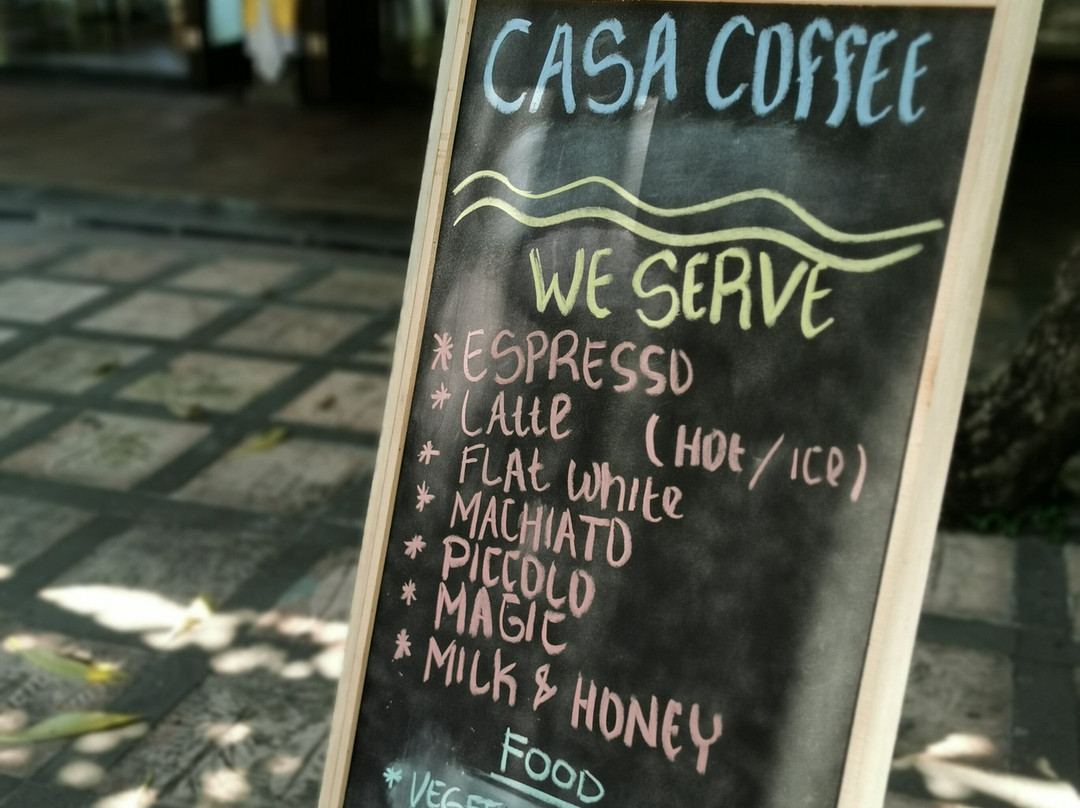 CASA COFFEE
WE SERVE
* ESPRESSO
* LAttE (HOt / ICe)
* FLAt white
* MACHIATO
* PICCOLO
* MAGIC
* MILK & HONEY
FOOD
*